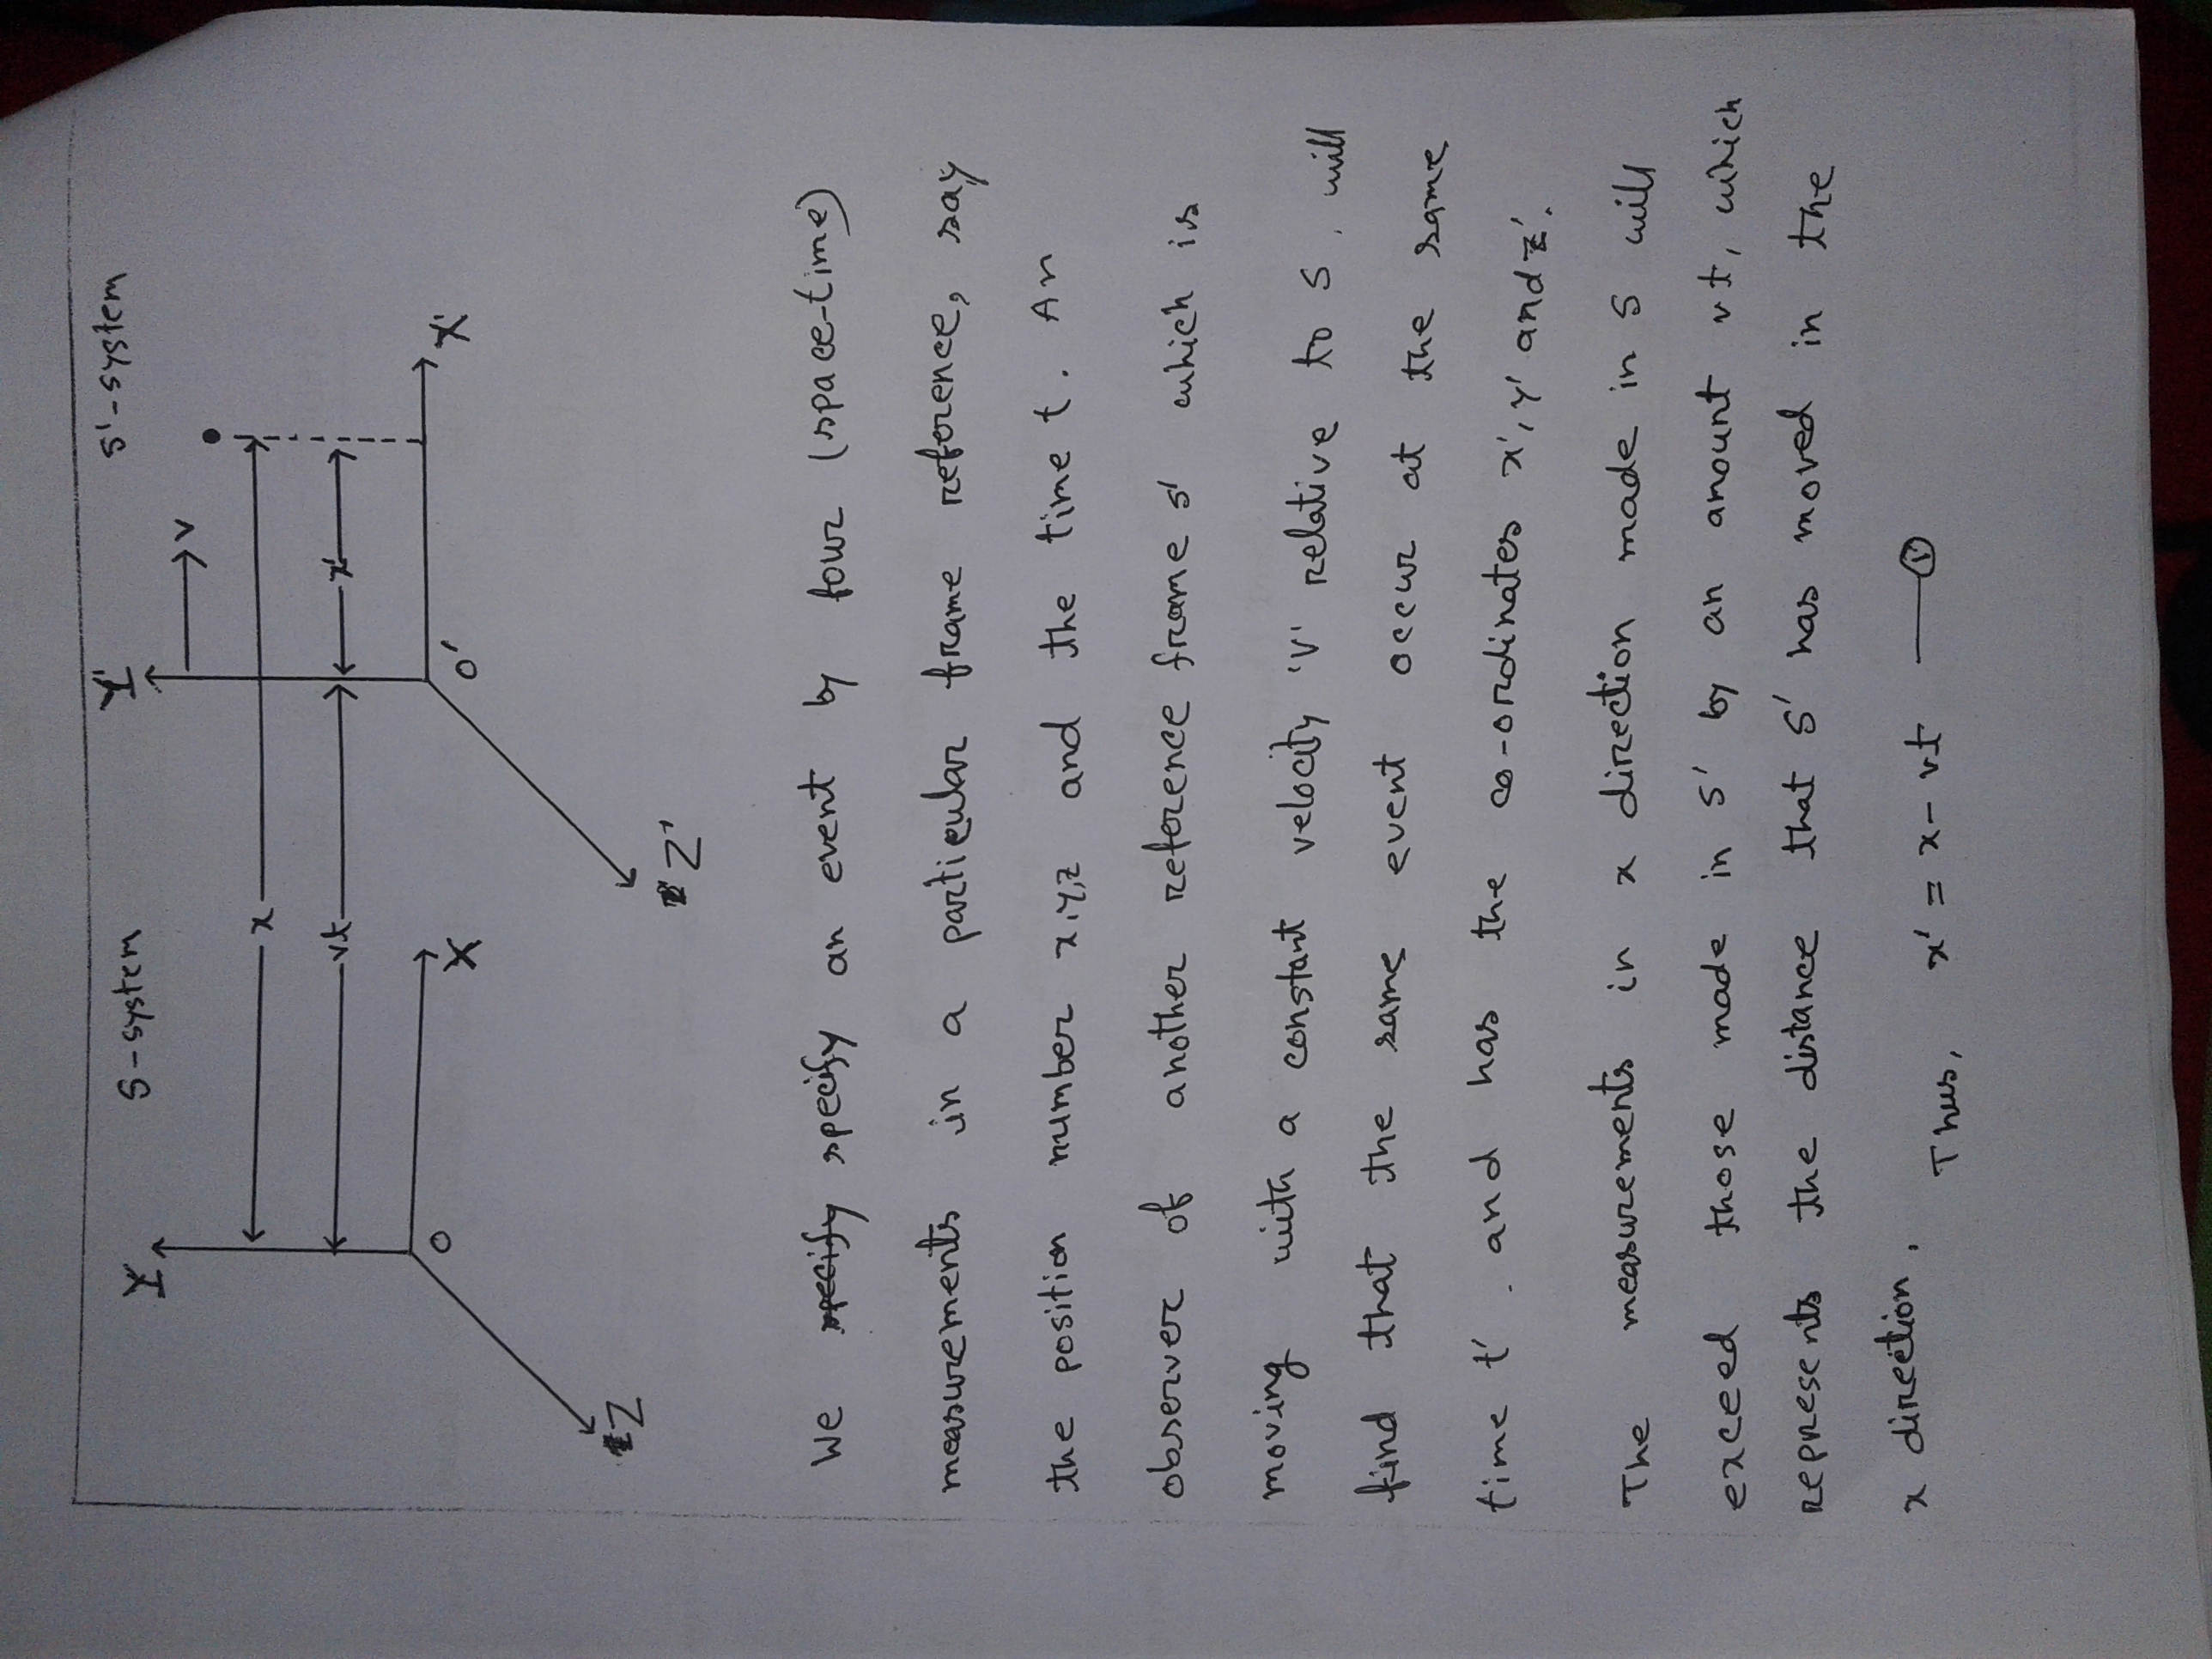 S-system
S'-system
Y
Y'
v
x
vt
x'
O
X
O'
X'
Z
Z'
We specify specify an event by four (space-time)
measurements in a particular frame reference, say
the position number x,y,z and the time t. An
observer of another reference frame s' which is
moving with a constant velocity 'v' relative to S, will
find that the same event occur at the same
time t' . and has the co-ordinates x', y' and z'.
The measurements in x direction made in S will
exceed those made in S' by an amount vt, which
represents the distance that S' has moved in the
x direction.
Thus, x' = x - vt